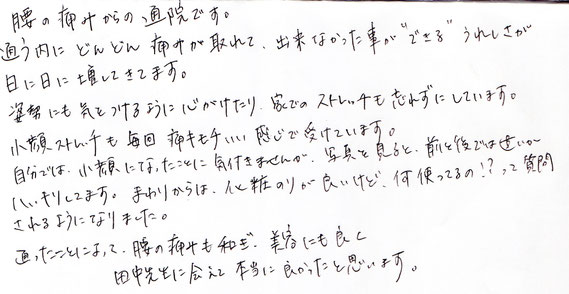 腰の痛みからの通院です。
通う内にどんどん痛みが取れて、出来なかった事が"できる"うれしさが
日に日に増してきてます。
姿勢にも気をつけるように心がけたり、家でのストレッチも忘れずにしています。
小顔ストレッチも毎回痛キモチいい感じで受けています。
自分では、小顔になったことに気付きませんが、写真を見ると、前と後では違いが
ハッキリしてます。まわりからは、化粧のりが良いけど、何使ってるの!?って質問
されるようになりました。
通ったことによって、腰の痛みも和ぎ、美容にも良く
田中先生に会えて本当に良かったと思います。